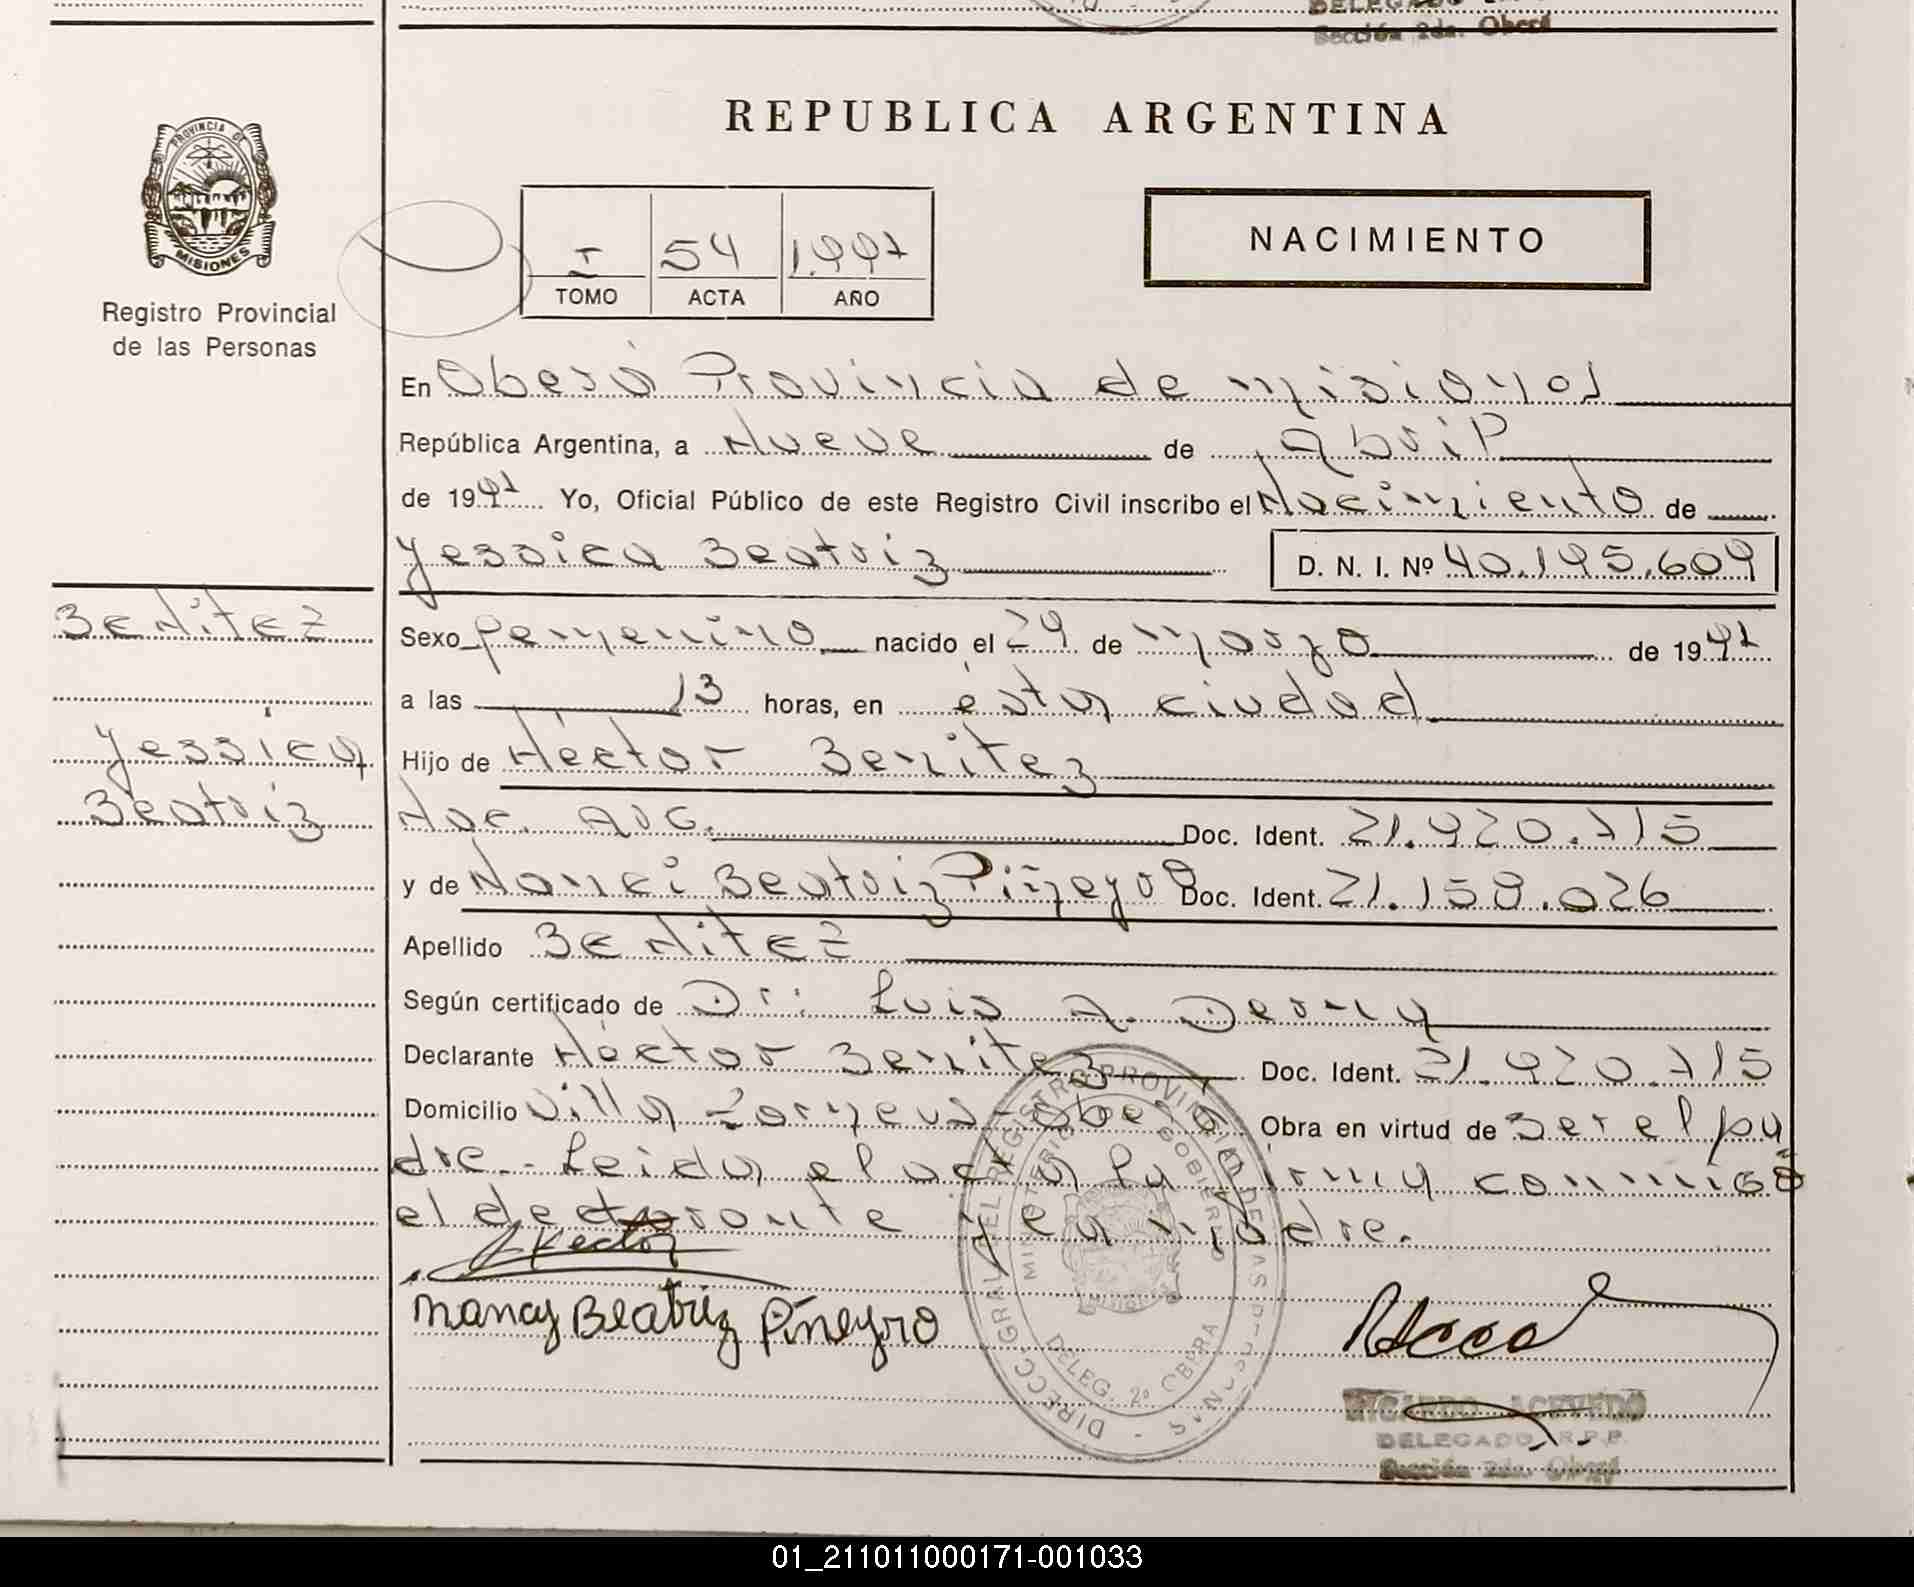 DELEGADO
Sección 2da. Oberá
PROVINCIA DE
MISIONES
Registro Provincial
de las Personas
REPUBLICA ARGENTINA
I 54 1.997
TOMO ACTA AÑO
NACIMIENTO
En Oberá Provincia de Misiones
República Argentina, a Nueve de Abril
de 1997 Yo, Oficial Público de este Registro Civil inscribo el Nacimiento de
Yessica Beatriz D. N. I. Nº 40.195.609
BENITEZ
Sexo femenino nacido el 24 de marzo de 1997
a las 13 horas, en ésta ciudad
Yessica
Hijo de Héctor Benitez
Beatriz
Nac. Arg. Doc. Ident. 21.920.715
y de Nanci Beatriz Piñeyro Doc. Ident. 21.158.026
Apellido BENITEZ
Según certificado de Dr: Luis A.
Declarante Héctor Benitez Doc. Ident. 21.920.715
Domicilio Villa Oberá Obra en virtud de ser el pa
dre.- Leida el acta la firma conmigo
el declarante y la madre.
Hector
Nancy Beatriz Piñeyro
DIRECC. GRAL. DEL REGISTRO PROVINCIAL DE LAS PERSONAS
MINISTERIO DE GOBIERNO
DELEG. 2º OBERA
RICARDO ACEVEDO
DELEGADO R.P.P.
Sección 2da. Oberá
01_211011000171-001033